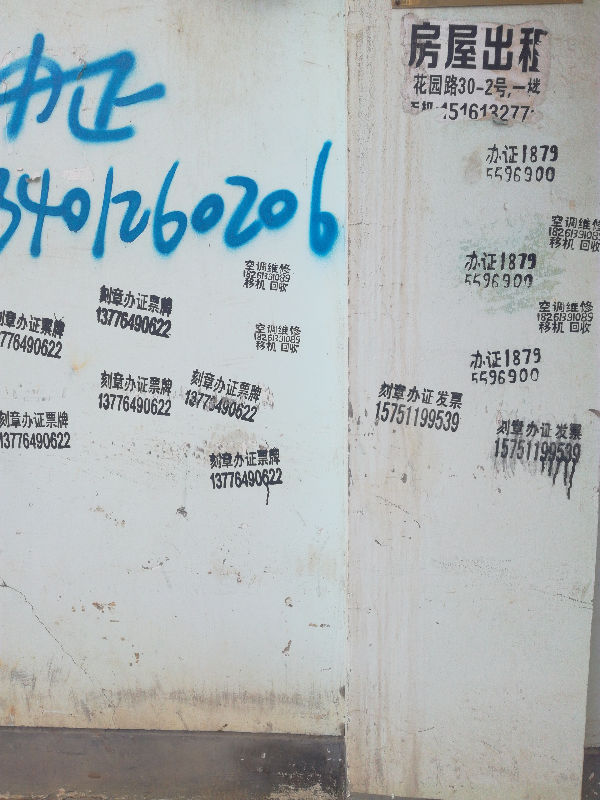 办证
3401260206
空调维修
18261391089
移机 回收
刻章办证票牌
13776490622
刻章办证票牌
13776490622
空调维修
18261391089
移机 回收
刻章办证票牌
13776490622
刻章办证票牌
13776490622
刻章办证票牌
13776490622
刻章办证票牌
13776490622
房屋出租
花园路30-2号,一垅
手机:1516132771
办证1879
5596900
空调维修
18261391089
移机 回收
办证1879
5596900
空调维修
18261391089
移机 回收
办证1879
5596900
刻章办证发票
15751199539
刻章办证发票
15751199539